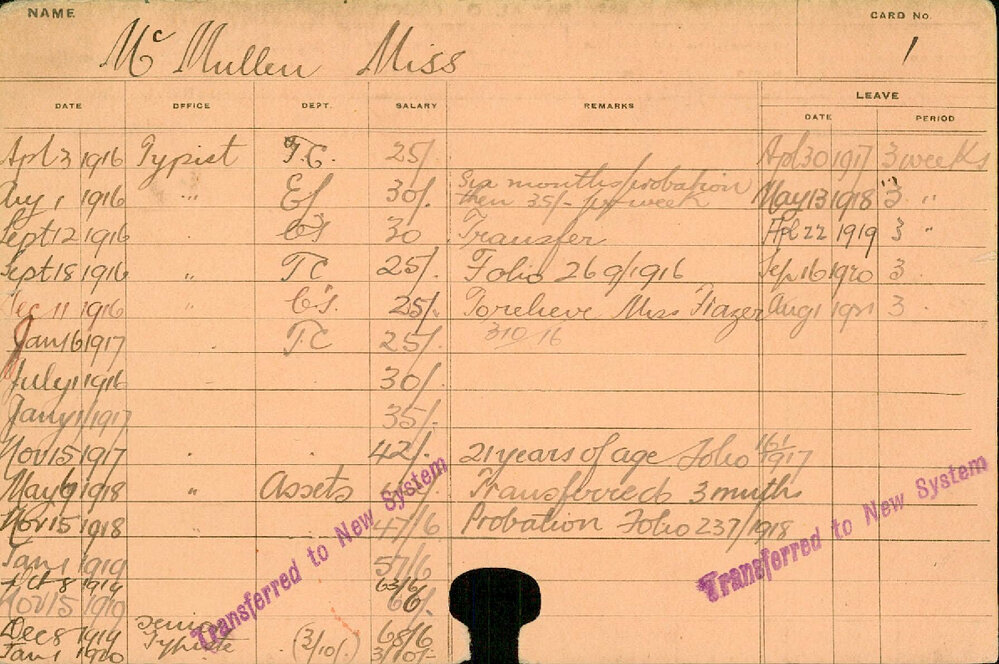 NAME
CARD No.
Mc Mullen Miss
1
DATE OFFICE DEPT. SALARY REMARKS LEAVE
DATE PERIOD
Apl 3 1916 Typist T.C. 25/. Apl 30 1917 3 weeks
Aug 1 1916 " 30/. Six months probation then 35/- per week May 13 1918 3 "
Sept 12 1916 30 Transfer Apl 22 1919 3 "
Sept 18 1916 " TC 25/. Folio 269/1916 Sep 16 1920 3
Dec 11 1916 " 25/. To relieve Miss Frazer Aug 1 1921 3
Jan 16 1917 T.C 25/. 310/16
July 1 1916 30/.
Jany 1 1917 35/.
Nov 15 1917 " 42/. 21 years of age Folio 161/1917
May 6 1918 " Assets Transferred 3 mnths
Nov 15 1918 47/6 Probation Folio 237/1918
Jan 1 1919 57/6
Oct 8 1919 63/6
Nov 15 1919
Dec 8 1919 Senior 68/6
Jan 1 1920 Typiste (3/10/.) 3/10/-
Transferred to New System
Transferred to New System